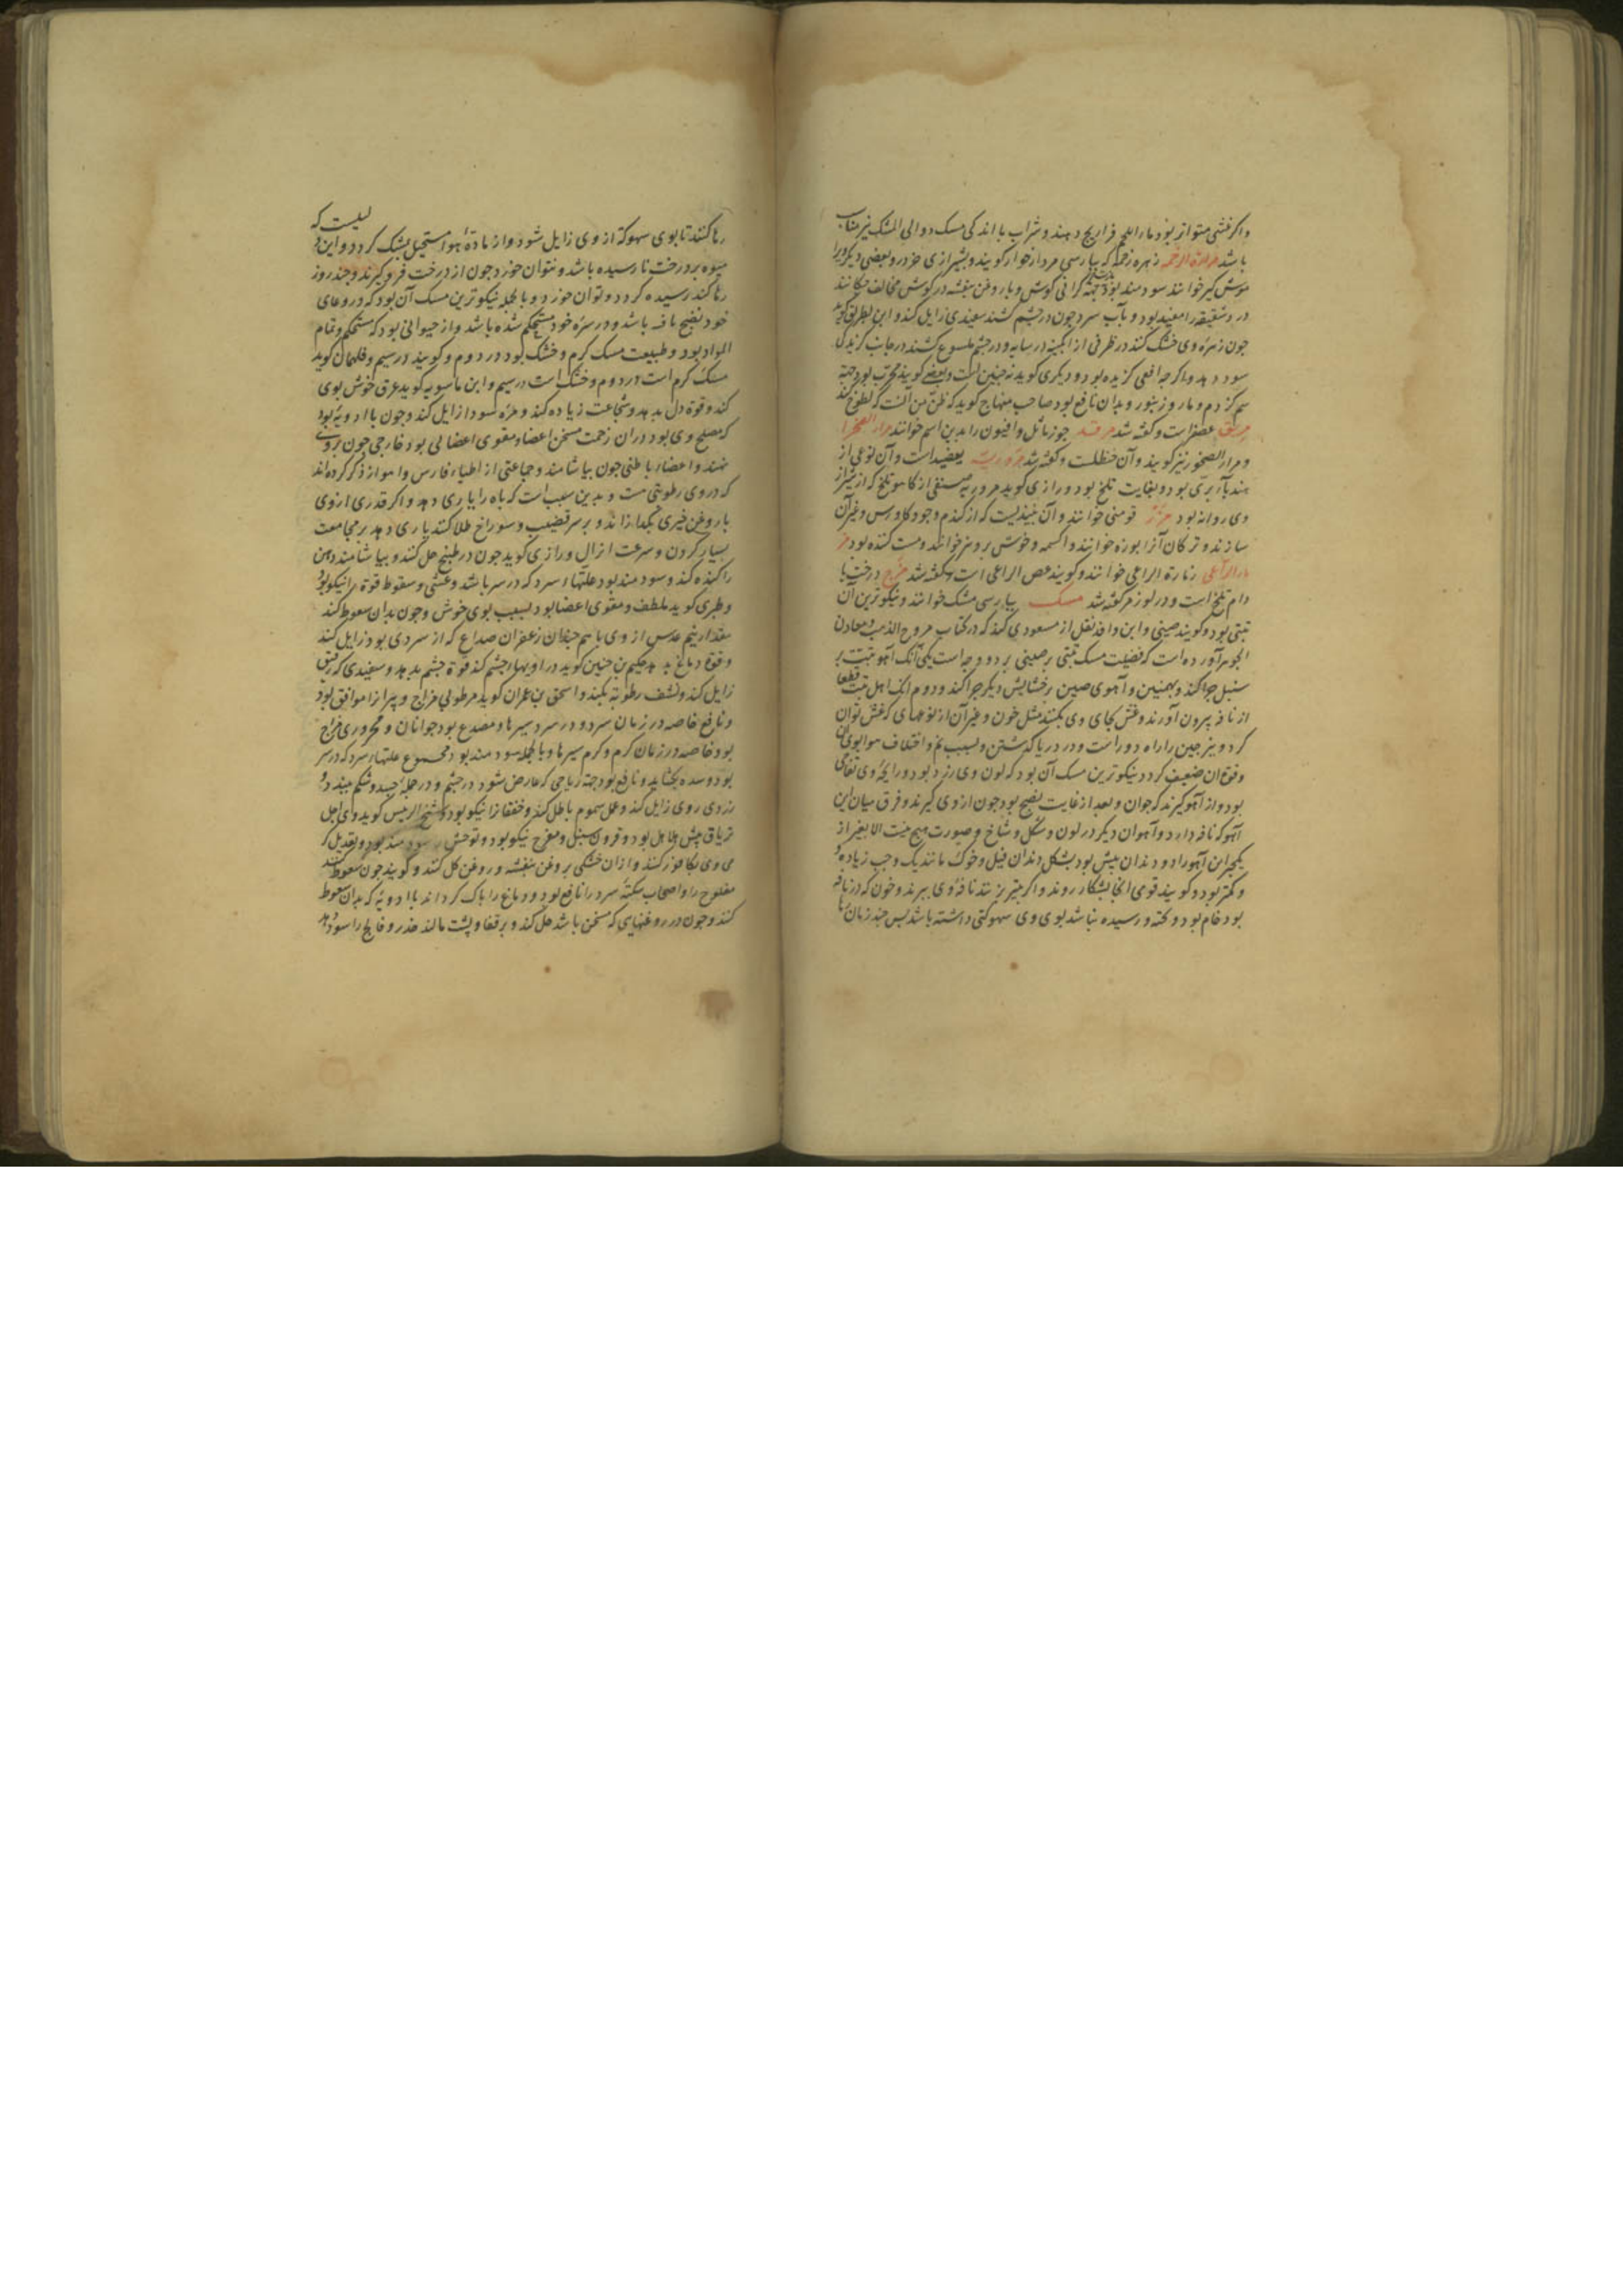 واکر غشی متواتر بود ماء اللحم فراریج دهند و شراب با اندکی مسک دوالی المشک نیز مناسب
باشد مرارة الرخمه زهره رخمه که بپارسی مردارخوار کویند و بشیرازی خردر و بعضی دیکر ویرا
موش کیر خوانند سودمند بود جهة کرانی کوش و با روغن بنفشه در کوش مخالف چکانند
درد شقیقه را مفید بود و بآب سرد چون در چشم کشند سفیدی زایل کند و ابن بطریق کوید
جون زهره وی خشک کنند در ظرفی از ابکینه در سایه و در چشم ملسوع کشند در جانب کزیدکی
سود دهد واکرچه افعی کزیده بود و دیکری کوید نه چنین است و بعضی کویند مجرب بود جهة
سم کزدم و مار و زنبور و بدان نافع بود صاحب منهاج کوید که ظن من آنست که لطوخ کنند
عصفر است و کفته شد مرقد جوز ماثل و افیون را بدین اسم خوانند مرار الصخرا
و مرار الصخور نیز کویند و آن حنظلست و کفته شد یعضید است و آن نوعی از
هندبآء بری بود و بغایت تلخ بود و رازی کوید مروریه صنفی از کاهو تلخ که از شیراز
وی روانه بود مزر قومنی خوانند و آن نبیذیست که از کندم و جو و کاورس و غیر آن
سازند و ترکان آنرا بوزه خوانند و اکسمه و خوش بروبز خوانند و مست کننده بود مز
مار الراعی زمارة الراعی خوانند و کویند عصی الراعی است و کفته شد مزج درخت با
دام تلخ است و در لوز مر کفته شد مسک بپارسی مشک خوانند و نیکوترین آن
تبتی بود و کویند صینی و ابن وافد نقل از مسعودی کند که در کتاب مروج الذهب و معادن
الجوهر آورده است که فضیلت مسک تبتی بر صینی بر دو وجه است یکی آنک آهو تبت بر
سنبل چرا کند و بهمنین و آهوی صین رخشایش دیکر چرا کند و دوم انک اهل تبت قطعا
از نافه بیرون آورند و غش بجای وی بکنند مثل خون و غیر آن از نوعهای که غش توان
کرد و نیز چین را راه دور است و در دریا کذشتن و بسبب نم و اختلاف هوا بوی آن
وقوة ان ضعیف کردد نیکوترین مسک آن بود که لون وی زرد بود و رایحه وی تفاحی
بود و از آهو کیرند که جوان و بعد از غایت نضج بود جون از وی کیرند و فرق میان این
آهو که نافه دارد و آهوان دیکر در لون و شکل و شاخ و صورت هیچ نیست الا بغیر از
یکچیز این آهو را دو دندان پیش بود بشکل دندان فیل و خوک مانند یک وجب زیاده
و کمتر بود و کویند قومی انجا بشکار روند و اکر بتیر بزنند نافه وی ببرند و خون که در نافه
بود خام بود و کخته و رسیده نباشد بوی وی سهوکتی داشته باشد بس چند زمان
رها کنند تا بوی سهوکة از وی زایل شود و از مادة هوا مستحیل بمشک کردد و این
لیست که
میوه بر درخت نارسیده باشد و نتوان خورد جون از درخت فروکیرند و چند روز
رها کنند رسیده کردد و توان خورد و بالجمله نیکوترین مسک آن بود که در وعای
خود نضج یافته باشد و در سره خود مستحکم شده باشد و از حیوانی بود که مستحکم و تمام
المواد بود و طبیعت مسک کرم و خشک بود در دوم و کویند در سیم و فلهمان کوید
مسک کرم است در دوم و خشک است در سیم و ابن ماسویه کوید عرق خوش بوی
کند و قوة دل بدهد و شجاعت زیاده کند و مره سودا زایل کند و جون باادویه بود
که مصلح وی بود دران زحمت مسخن اعضا و مقوی اعضائی بود خارجی جون بروی
نهند و اعضاء باطنی جون بیاشامند و جماعتی از اطباء فارس و اهواز ذکر کرده اند
که در وی رطوبتی هست و بدین سبب است که باه را یاری دهد و اکر قدری ازوی
با روغن خیری بکدازانند و بر سر قضیب و سوراخ طلا کنند یاری دهد بر مجامعت
بسیار کردن و سرعت انزال و رازی کوید جون در طبخ حل کنند و بیاشامند دهن
را کنده کند و سودمند بود علتهاء سرد که در سر باشد و غشی و سقوط قوة را نیکو بود
وطبری کوید ملطف و مقوی اعضا بود بسبب بوی خوش و جون بدان سعوط کند
مقدار نیم عدس از وی با هم چندان زعفران صداع که از سردی بود زایل کند
وقوة دماغ بدهد حکیم بن حنین کوید در اوویهاء چشم کند قوة چشم بدهد و سفیدی که رقیق
زایل کند و نشف رطوبة بکند و اسحق بن عمران کوید مرطوبی مزاج و پیر انرا موافق بود
و نافع خاصه در زمان سرد و در سردسیرها و مصدع بود جوانان و محروری مزاج
بود خاصه در زمان کرم و کرم سیرها و بالجمله سودمند بود مجموع علتهاء سرد که در سر
بود و سده بکشاید و نافع بود جهة ریاحی که عارض شود در چشم و در جمله جسد و شکم ببندد و
زردی روی زایل کند و عمل سموم باطل کند و خفقانرا نیکو بود و شیخ الرئیس کوید وی اجل
تریاق بیش هلاهل بود و قرون سنبل و مفرح نیکو بود و توحش را سودمند بود و تعدیل کر
می وی بکافور کنند و ازان خشکی بروغن بنفشه و روغن کل کنند و کویند جون سعوط کنند
مفلوج را و اصحاب سکته سرد را نافع بود و دماغ را پاک کرداند باادویه که بدان سعوط
کنند و جون در روغنهایی که مسخن باشد حل کنند و بر قفا و پشت مالند خدر و فالج را سود دهد